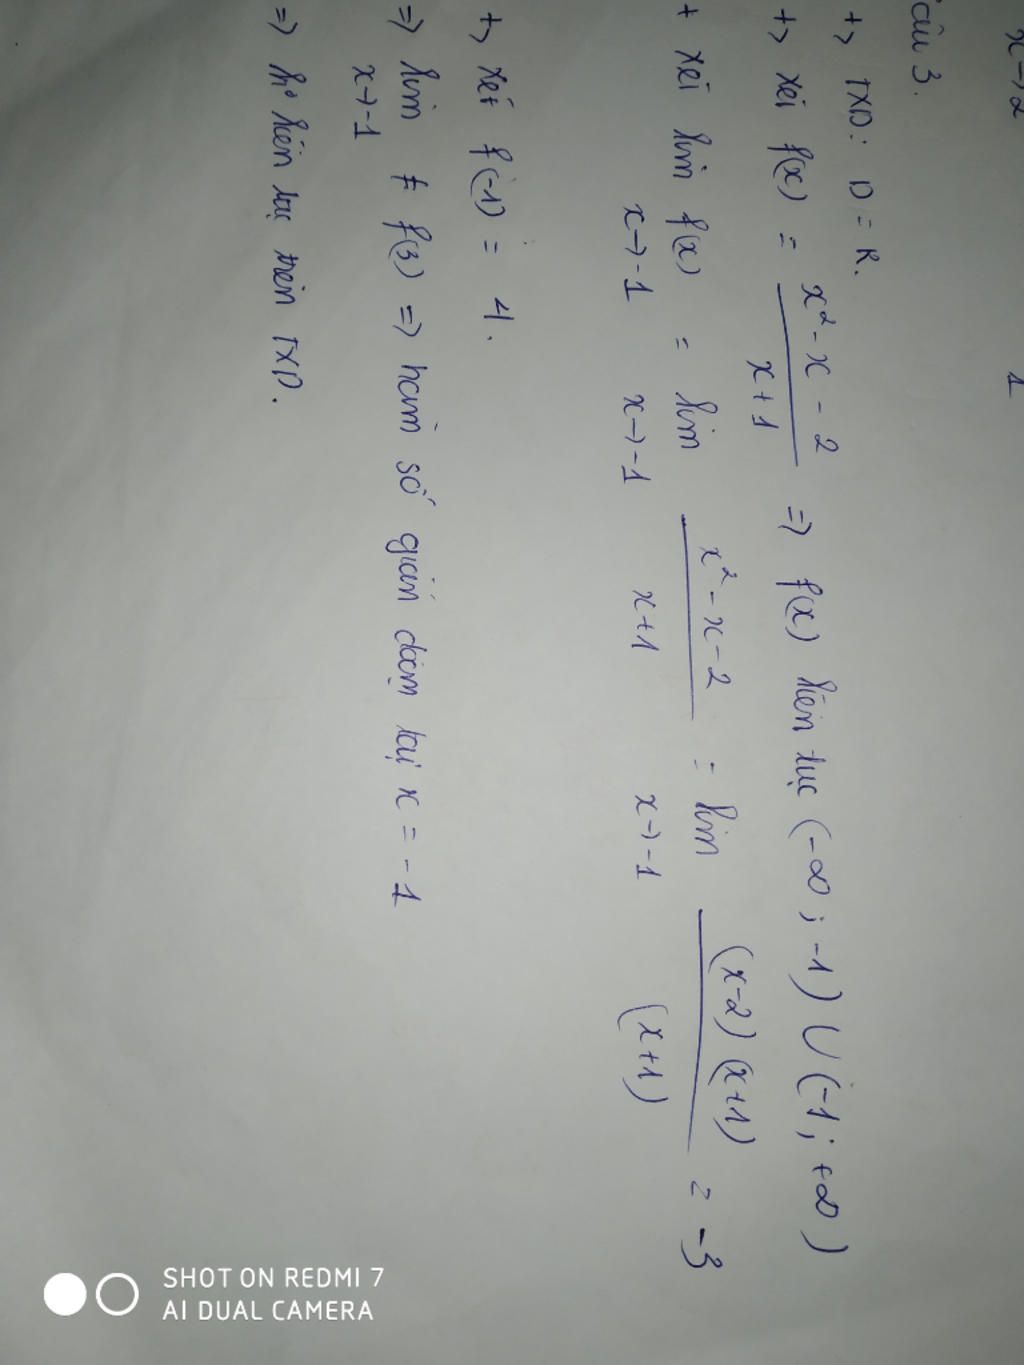 x→2
1
Câu 3.
+> TXD: D = R.
+> xét f(x) = x² - x - 2 / x + 1 => f(x) liên tục (-∞; -1) ∪ (-1; +∞)
+ xét lim f(x) = lim x² - x - 2 / x+1 = lim (x-2) (x+1) / (x+1) = -3
x→-1 x→-1 x→-1
+> xét f(-1) = 4.
=> lim ≠ f(3) => hàm số gián đoạn tại x = -1
x→-1
=> liên tục trên TXD.
SHOT ON REDMI 7
AI DUAL CAMERA